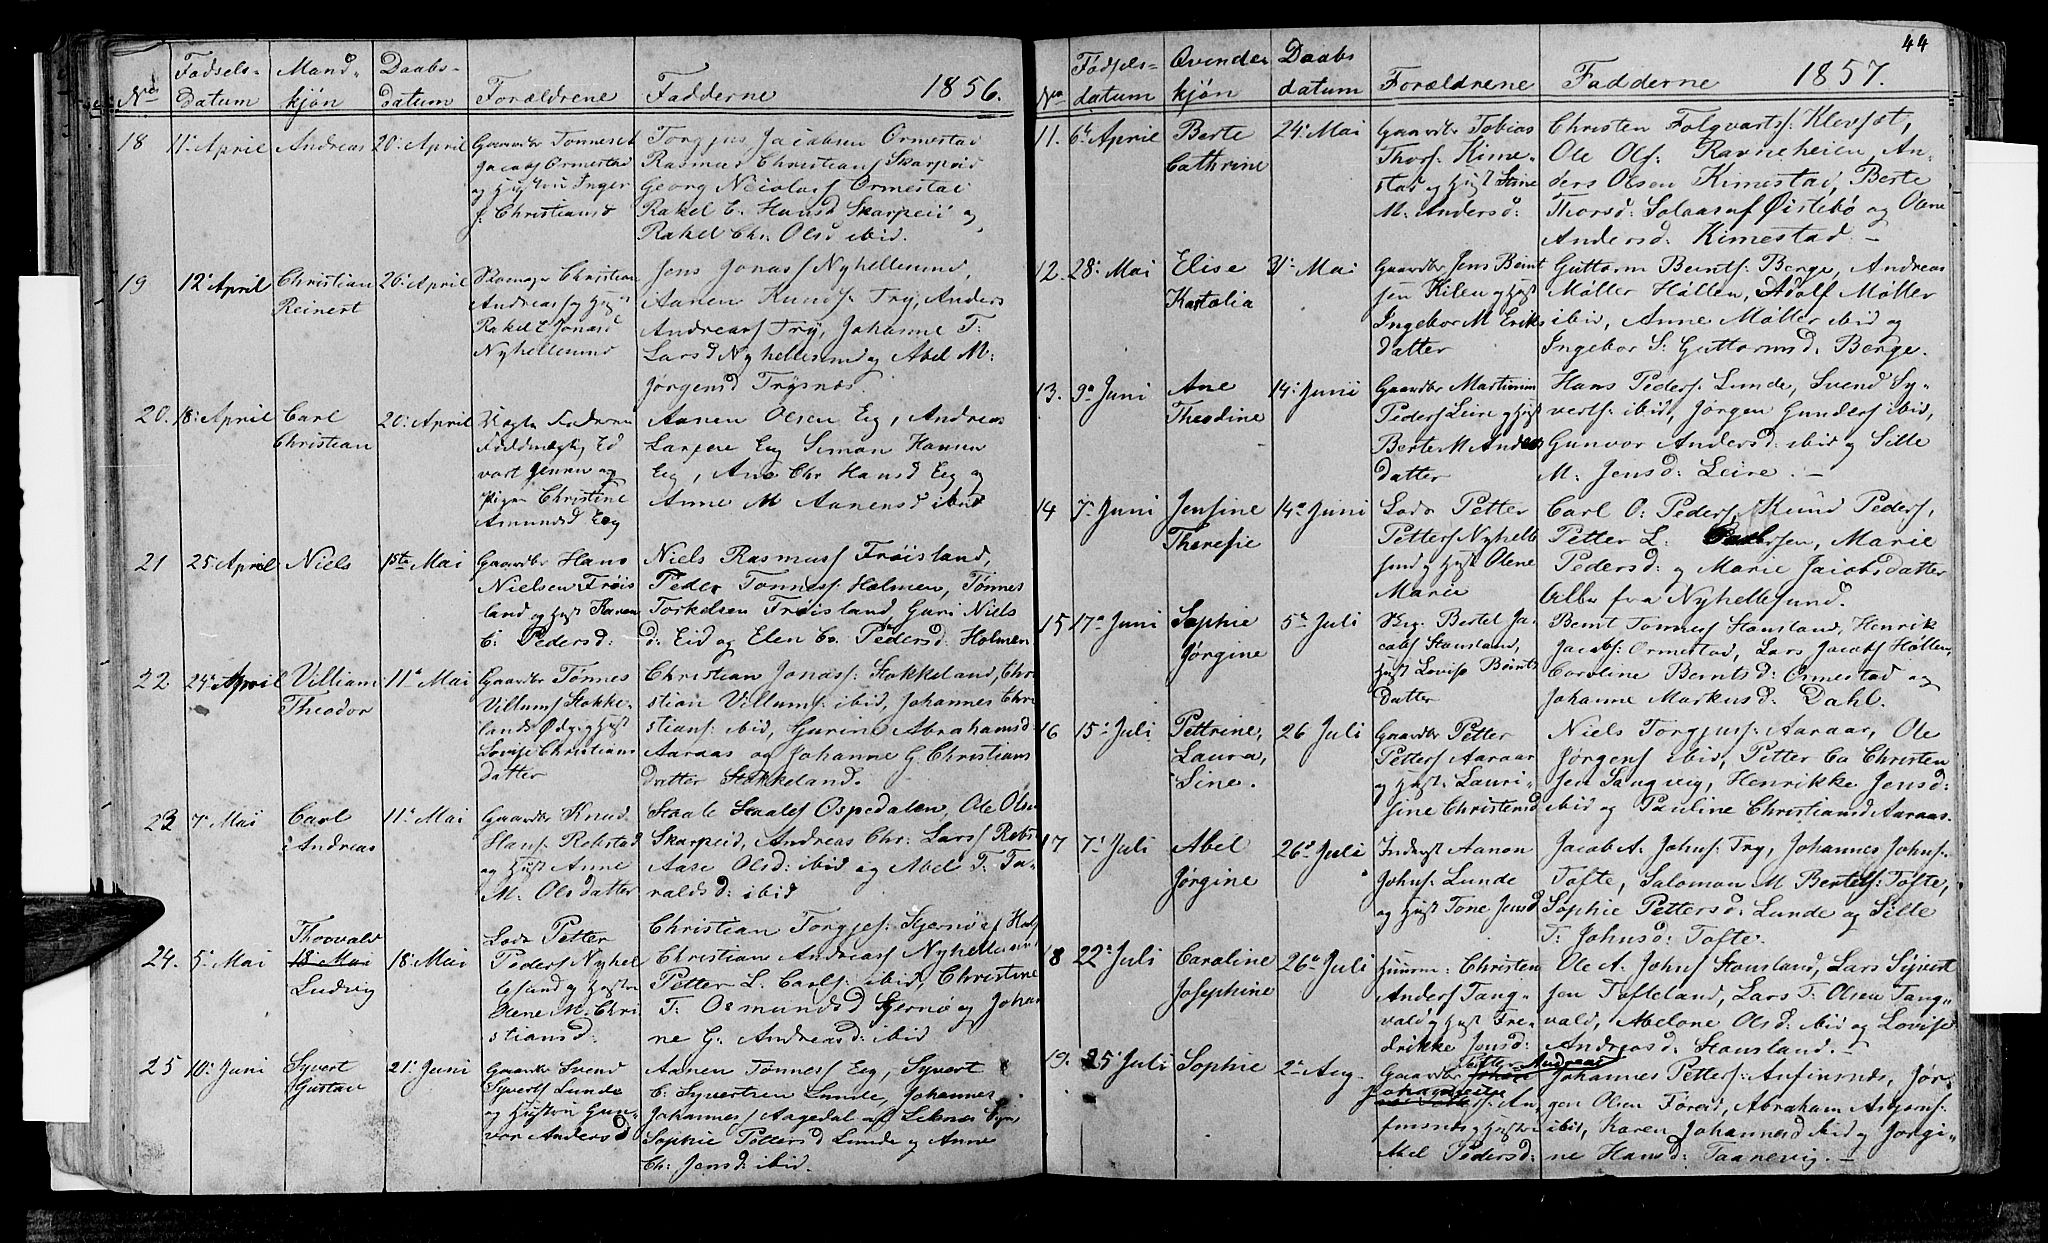 Fødsels-
datum
Mand-
kjøn
Daabs-
datum
Forældrene
Fadderne
1856.
18
11te April
Andreas
20de April
Gaardbr Tønnes
Jacobs Ormestad
og Hustru Inger
Christiansd
Torgjus Jacobsen Ormestad
Rasmus Christians Skarpeid
Georg Neiolas Ormestad
Rakel E. Hansd Skarpeid og
Rakel Chr. Olsd ibid.
19
12te April
Christian
Reinert
20de April
Christian
Andreass og Hust
Rakel E Jonasd
Nyhellesund
Jens Jonass Nyhellesund,
Aanen Knuds: Try, Anders
Andreass Try, Johanne T:
Larsd Nyhellesund og Abel M:
Jørgensd Trysnes
20.
18de April
Carl
Christian
20de April
Edvart Jensen og
Pigen Christine
Amundsd Eeg
Aanen Olsen Eeg, Andreas
Eeg Simon Hansen
Eeg, Ane Chr Hansd Eeg og
Anne M Aanensd ibid
21
25 April
Niels
1ste Mai
Gaardbr Hans
Nielsen Frøis
land og Hust Karen
C. Pedersd:
Niels Rasmuss Frøisland,
Peder Tønness: Holmen, Tønnes
Torkelsen Frøisland, Guri Niels
d: Eid og Elen C. Pedersd: Holmen
22
24de April
Villiam
Theodor
11te Mai
Gaardbr Tønnes
Villums Stokke-
land og Hust
Lovise Christians
datter
Christian Jonass: Stokkeland, Chri
stian Villums: ibid, Johannes Chri
stians: ibid, Gurine Abrahamsd
Aaraas og Johanne G. Christians
datter Stokkeland.
23
7de Mai
Carl
Andreas
11te Mai
Gaardbr Knud
Hans: Rekstad
og Hust Anne
M. Olsdatter
Staale Staales Ospedalen, Ole Ols
Skarpeid, Andreas Chr: Lars
Aase Olsd: ibid og Abel T. Ta
raldsd: ibid
24.
5te Mai
Thorvald
18 Mai
Ludvig
18de Mai
Lods Petter
Peders Nyhel
lesund og Hustru
Olene M. Chri
stiansd:
Christian Torgjes: Stjernø
Christian Andreass Nyhellesund
Petter L. Carls: ibid, Christine
T: Osmundsd Stjernø og Johan
ne G. Andreasd: ibid
25
10de Juni
Syvert
Gustav
21de Juni
Gaardbr Svend
Syverts Lunde
og Hustru Gun-
vor Andersd
Aanen Tønness Eeg, Syvert
C. Syvertsen Lunde, Johannes
Johanness Aagedal af
Sophie Pettersd Lunde og Anne
Ch: Jensd: ibid.
44
No
Fødsels-
datum
Qvinde
kjøn
Daabs
datum
Forældrene
Fadderne
1857.
11.
6te April
Berte
Cathrine
24de Mai
Gaardbr Tobias
Thors: Kime-
stad og Hust Stine
M. Andersd:
Christen Folqvarts: Klevset,
Ole Ols: Ravneheien, An-
ders Olsen Kimestad, Berte
Thorsd: Solaas af Øistebø og Olene
Andersd: Kimestad. —
12.
28de Mai
Elise
31te Mai
Gaardbr Jens Bernt
sen Kilen og Hust
Ingebor M Eriks
datter
Guttorm Bernts: Berge, Andreas
Møller Høllen, Adolf Møller
ibid, Anne Møller ibid og
Ingebor S: Guttormsd: Berge.
13.
9de Juni
Ane
Theodine
14de Juni
Gaardbr Martinius
Peders Leire og Hust
Berte M Anders
datter
Hans Peders: Lunde, Svend Sy-
verts: ibid, Jørgen Gunders ibid,
Gunvor Andersd: ibid og Sille
M. Jensd: Leire. —
14
7de Juni
Jensine
Theresie
14de Juni
Lods Petter
Petters Nyhelle
sund og Hust Olene
Marie
Carl O. Peders, Knud Peders,
Petter L. Pedersen, Marie
Pedersd: og Marie Jacobsdatter
Alle fra Nyhellesund.
15
17de Juni
Sophie
Jørgine
5te Juli
Bertel Ja-
cobs Stausland,
Hust Lovise Bernts
datter
Bernt Tønness Stausland, Henrik
Jacobs: Ormestad, Lars Jacobs Høllen,
Caroline Berntsd: Ormestad og
Johanne Markusd: Dahl.
16
15de Juli
Pettrine,
Laura,
Sine.
26 Juli
Gaardbr Petter
Petters Aaraas
og Hust: Lauri-
sine Christensd
Niels Torgjus: Aaraas, Ole
Jørgens ibid, Petter C. Christen
sen Tangvig, Henrikke Jensd:
ibid og Pauline Christiansd Aaraas.
17
7de Juli
Abel
Jørgine
26de Juli
Inderst Aanon
Johns: Lunde
og Hust Tone Jensd
Jacob A. Johns: Try, Johannes Johns:
Tofte, Salomon M Bertels: Tofte,
Sophie Pettersd: Lunde og Sille
T. Johnsd: Tofte.
18
22de Juli
Caroline
Josephine
26de Juli
Huusm: Christen
Anders Tang-
vald og Hust Fre-
drikke Jensd:
Ole A. Johns Stausland, Lars Syvert
sen Tofteland, Lars T. Olsen Tang-
vald, Abelone Olsd: ibid og Lovise
Andreasd: Stausland. —
19.
25 Juli
Sophie
2de Aug.
Gaardbr Petter Andreas
Johannes: An-
finsnes og Hustru
Abel Pedersd:
Johannes Petters: Anfinsnes, Jør-
gen Olsen Føreid, Abraham Asbjørns:
ibid, Karen Johannesd ibid og Jørgi-
ne Hansd: Taanevig. —